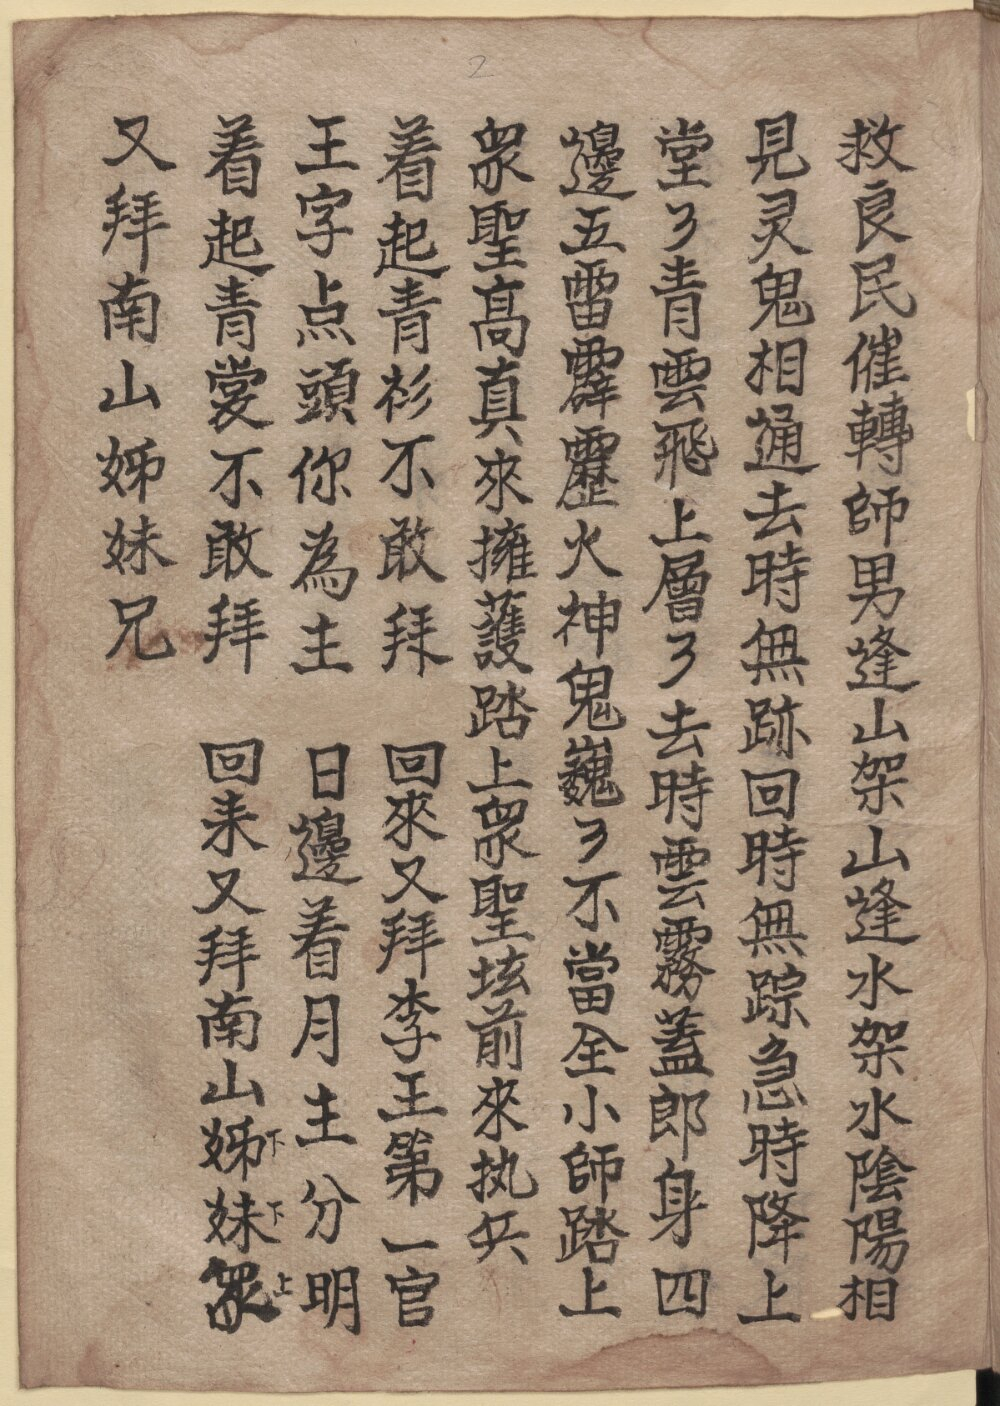 2
救良民催轉師男逢山架山逢水架水陰陽相
見灵鬼相通去時無跡回時無踪急時降上
堂々青雲飛上層々去時雲霧蓋郎身四
邊五雷霹靂火神鬼巍々不當全小師踏上
衆聖高真來擁護踏上衆聖垓前來执兵
着起青衫不敢拜 回來又拜李王第一官
王字点頭你為主 日邊着月主分明
着起青裳不敢拜 回来又拜南山姊下妹下衆上
又拜南山姊妹兄